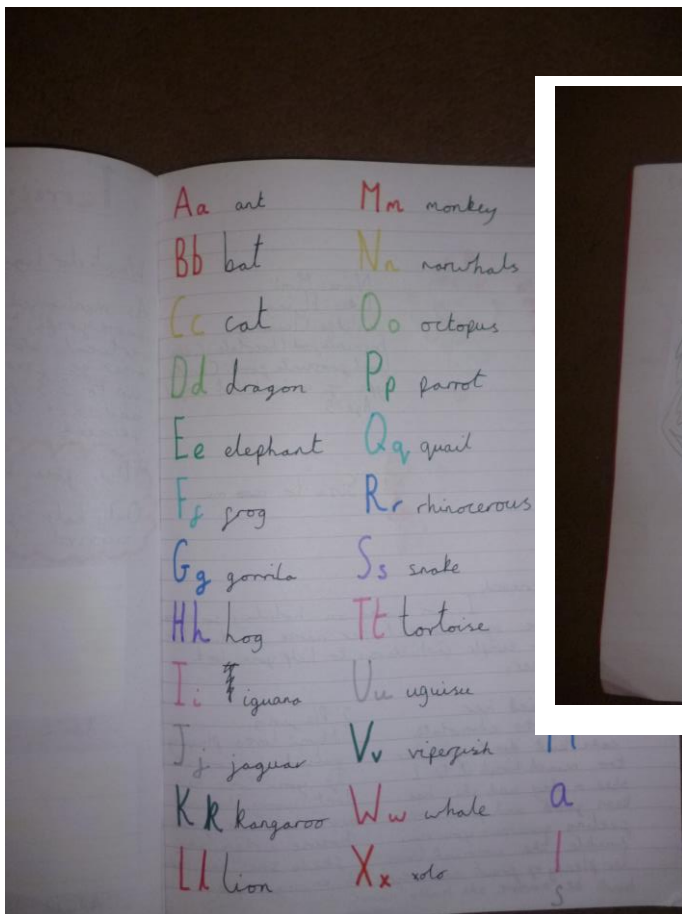 Aa ant
Bb bat
Cc cat
Dd dragon
Ee elephant
Ff frog
Gg gorrila
Hh hog
Ii iguana
Jj jaguar
Kk kangaroo
Ll lion
Mm monkey
Nn narwhals
Oo octopus
Pp parrot
Qq quail
Rr rhinocerous
Ss snake
Tt tortoise
Uu uguisu
Vv viperfish
Ww whale
Xx xolo
a
l
s